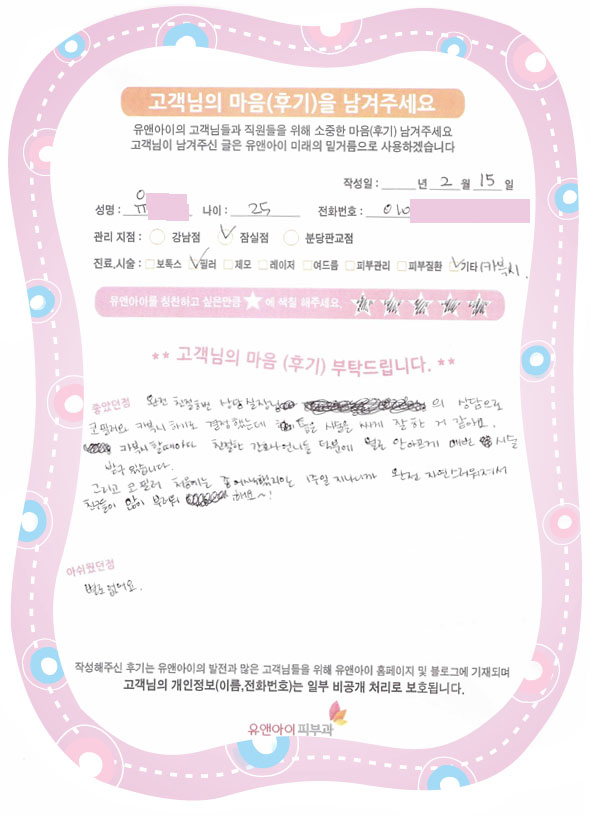 고객님의 마음(후기)을 남겨주세요
유앤아이의 고객님들과 직원들을 위해 소중한 마음(후기) 남겨주세요
고객님이 남겨주신 글은 유앤아이 미래의 밑거름으로 사용하겠습니다
작성일 : 년 2 월 15 일
성명 : 나이 : 25 전화번호 : 010
관리 지점 : 강남점 잠실점 분당판교점
진료,시술 : 보톡스 필러 제모 레이저 여드름 피부관리 피부질환 기타 (카복시.
유앤아이를 칭찬하고 싶은만큼 ★ 에 색칠 해주세요.
** 고객님의 마음 (후기) 부탁드립니다. **
좋았던점 완전 친절하신 상담실장님 의 상담으로
코필러와 카복시 하기로 결정했는데 시술을 싸게 잘 한 거 같아요.
카복시 할때마다 친절한 간호사언니들 덕분에 별로 안아프게 매번 시술
받구 있습니다.
그리고 코필러 처음에는 좀 어색했지만 1주일 지나니까 완전 자연스러워져서
친구들이 많이 부러워 해요~!
아쉬웠던점
별로 없어요.
작성해주신 후기는 유앤아이의 발전과 많은 고객님들을 위해 유앤아이 홈페이지 및 블로그에 기재되며
고객님의 개인정보(이름,전화번호)는 일부 비공개 처리로 보호됩니다.
유앤아이피부과